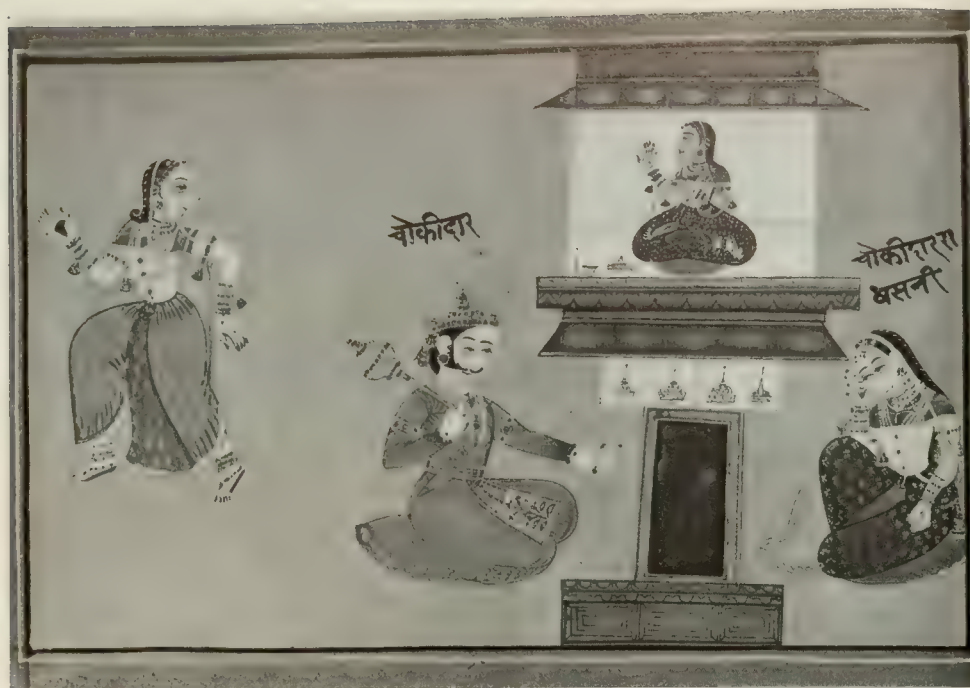 चोकीदार
चोकीदाररा
धसत्री